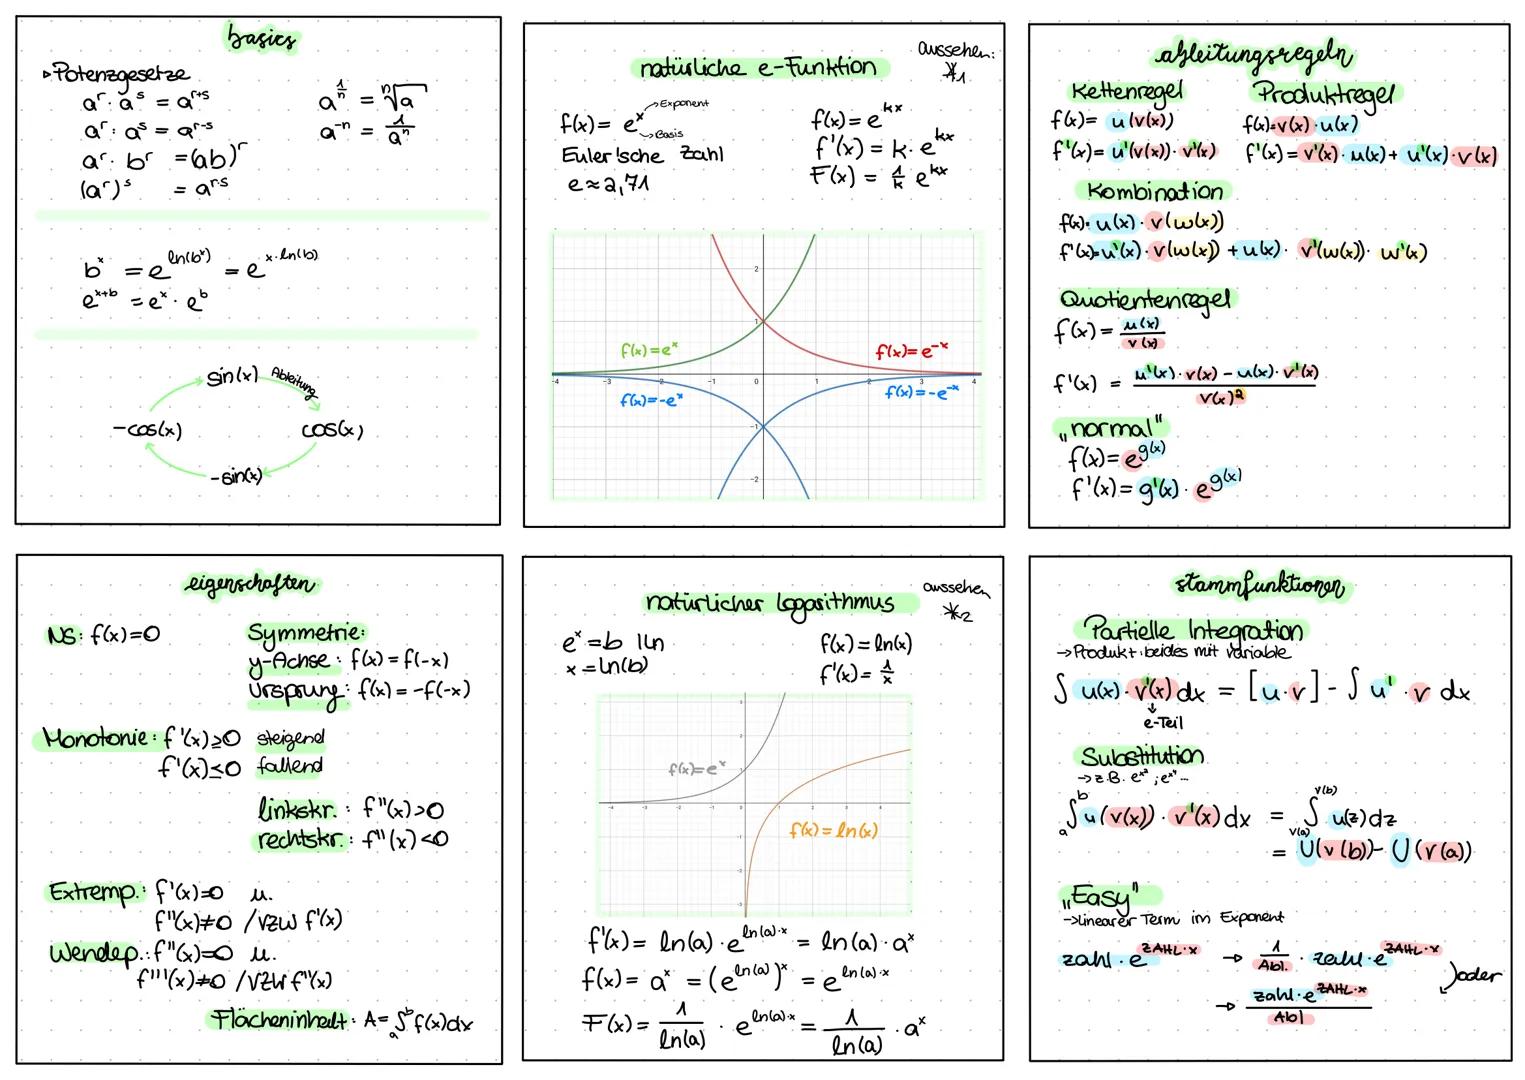 basics
▹Potenzgesetze
aʳ · aˢ = aʳ⁺ˢ
aʳ : aˢ = aʳ⁻ˢ
aʳ · bʳ = (ab)ʳ
(aʳ)ˢ = aʳ·ˢ
a^(1/n) = ⁿ√a
a⁻ⁿ = 1/aⁿ
bˣ = e^ln(bˣ) = e^x·ln(b)
e^x+b = eˣ · eᵇ
sin(x)
Ableitung
cos(x)
-sin(x)
-cos(x)
natürliche e-Funktion
aussehen:
*1
f(x) = eˣ
→Exponent
→Basis
Euler'sche Zahl
e≈2,71
f(x) = e^kx
f'(x) = k · e^kx
F(x) = 1/k e^kx
2
1
f(x)=eˣ
f(x)=e⁻ˣ
-4 -3 -2 -1 0 1 2 3 4
f(x)=-eˣ
f(x)=-e⁻ˣ
-1
-2
ableitungsregeln
Kettenregel
f(x) = u(v(x))
f'(x) = u'(v(x)) · v'(x)
Produktregel
f(x)=v(x) · u(x)
f'(x) = v'(x) · u(x) + u'(x) · v(x)
Kombination
f(x)= u(x) · v(w(x))
f'(x)=u'(x) · v(w(x)) + u(x) · v'(w(x)) · w'(x)
Quotientenregel
f(x) = u(x)/v(x)
f'(x) = u'(x) · v(x) - u(x) · v'(x)/v(x)²
„normal"
f(x) = e^g(x)
f'(x) = g'(x) · e^g(x)
eigenschaften
NS: f(x)=0
Symmetrie:
y-Achse : f(x) = f(-x)
Ursprung : f(x) = -f(-x)
Monotonie: f'(x)≥0 steigend
f'(x)≤0 fallend
linkskr. : f''(x)>0
rechtskr. : f''(x)<0
Extremp.: f'(x)=0 u.
f''(x)≠0 /VZW f'(x)
Wendep.: f''(x)=0 u.
f'''(x)≠0 /VZW f''(x)
Flächeninhalt: A= ₐ∫ᵇ f(x)dx
natürlicher Logarithmus
aussehen
*2
eˣ = b |ln
x = ln(b)
f(x) = ln(x)
f'(x) = 1/x
3
2
1
f(x)=eˣ
-4 -3 -2 -1 0 1 2 3 4
f(x)=ln(x)
-1
-2
-3
f'(x) = ln(a) · e^ln(a)·x = ln(a) · aˣ
f(x) = aˣ = (e^ln(a))ˣ = e^ln(a)·x
F(x) = 1/ln(a) · e^ln(a)·x = 1/ln(a) · aˣ
stammfunktionen
Partielle Integration
→Produkt: beides mit Variable
∫ u(x) · v'(x) dx = [u · v] - ∫ u' · v dx
↓
e-Teil
Substitution
→z.B. e^x²; e^x³...
ₐ∫ᵇ u(v(x)) · v'(x) dx = v(a)∫v(b) u(z)dz
= U(v(b)) - U(v(a))
„Easy"
→linearer Term im Exponent
zahl · e^ZAHL·x → 1/Abl. · zahl · e^ZAHL·x
) oder
→ zahl · e^ZAHL·x/Abl